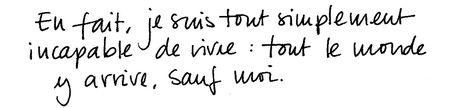 En fait, je suis tout simplement
incapable de vivre : tout le monde
y arrive, sauf moi.